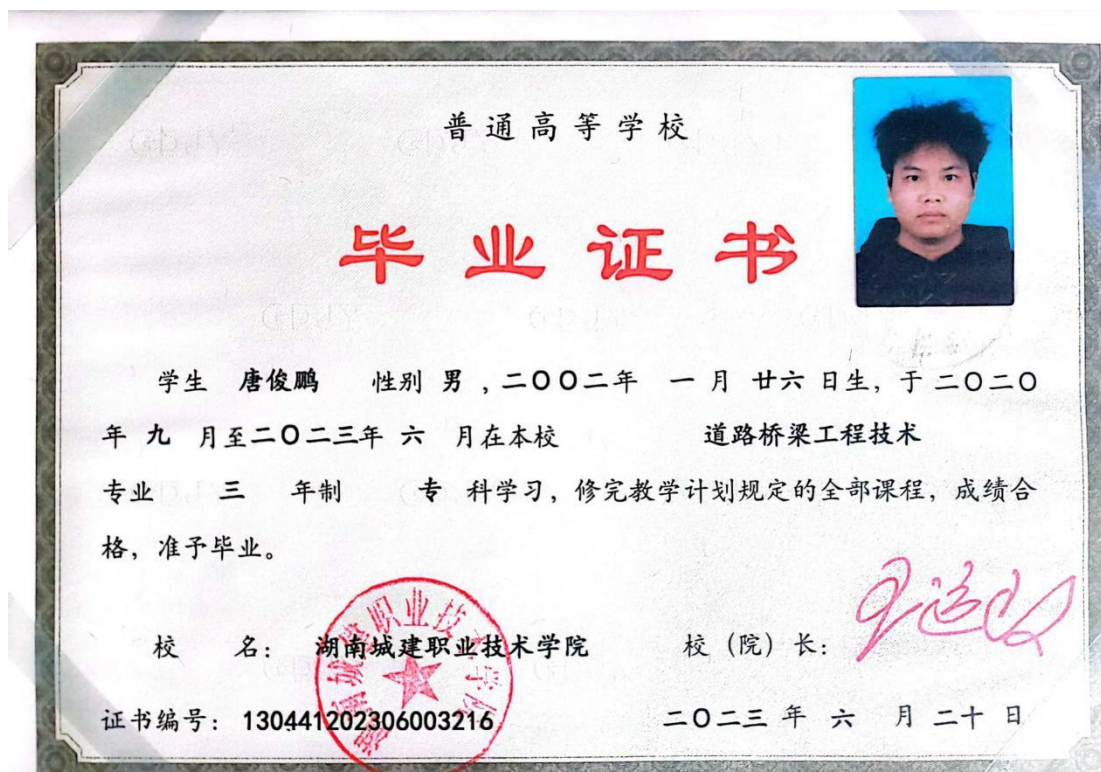 普通高等学校
毕业证书
学生 唐俊鹏 性别 男 ，二〇〇二年 一 月 廿六 日生，于 二〇二〇
年 九 月至二〇二三年 六 月在本校 道路桥梁工程技术
专业 三 年制 专 科学习，修完教学计划规定的全部课程，成绩合
格，准予毕业。
校 名： 湖南城建职业技术学院 校（院）长：
湖南城建职业技术学院
证书编号： 130441202306003216 二〇二三 年 六 月 二十 日